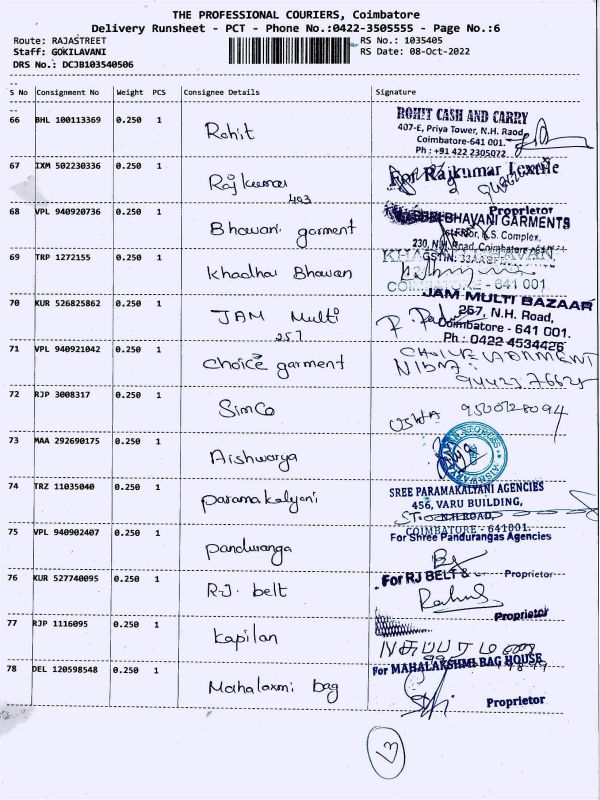 THE PROFESSIONAL COURIERS, Coimbatore
Delivery Runsheet - PCT - Phone No.:0422-3505555 - Page No.:6
Route: RAJASTREET
RS No.: 1035405
Staff: GOKILAVANI
RS Date: 08-Oct-2022
DRS No.: DCJB103540506
S No Consignment No Weight PCS Consignee Details Signature
66 BHL 100113369 0.250 1 Rohit
ROHIT CASH AND CARRY
407-E, Priya Tower, N.H. Raod,
Coimbatore-641 001.
Ph : +91 422 2305072
67 IXM 502230336 0.250 1 Rajkumar
403
For Rajkumar Textile
Proprietor
68 VPL 940920736 0.250 1 Bhavani garment
BHAVANI GARMENTS
K.S. Complex,
230, N.H. Road, Coimbatore
69 TRP 1272155 0.250 1 Khadhar Bhavan
COIMBATORE - 641 001
70 KUR 526825862 0.250 1 JAM Multi
257
JAM MULTI BAZAAR
257, N.H. Road,
Coimbatore - 641 001.
Ph : 0422 4534426
71 VPL 940921042 0.250 1 Choice garment
CHOICE GARMENT
72 RJP 3008317 0.250 1 Simco
USHA 9500128094
73 MAA 292690175 0.250 1 Aishwarya
74 TRZ 11035040 0.250 1 paramakalyani
SREE PARAMAKALYANI AGENCIES
456, VARU BUILDING,
N.H ROAD,
COIMBATORE - 641001.
75 VPL 940902407 0.250 1 panduranga
For Shree Pandurangas Agencies
Proprietor
76 KUR 527740095 0.250 1 R.J. belt
For RJ BELT &
Proprietor
77 RJP 1116095 0.250 1 kapilan
78 DEL 120598548 0.250 1 Mahalaxmi bag
For MAHALAKSHMI BAG HOUSE
Proprietor
13